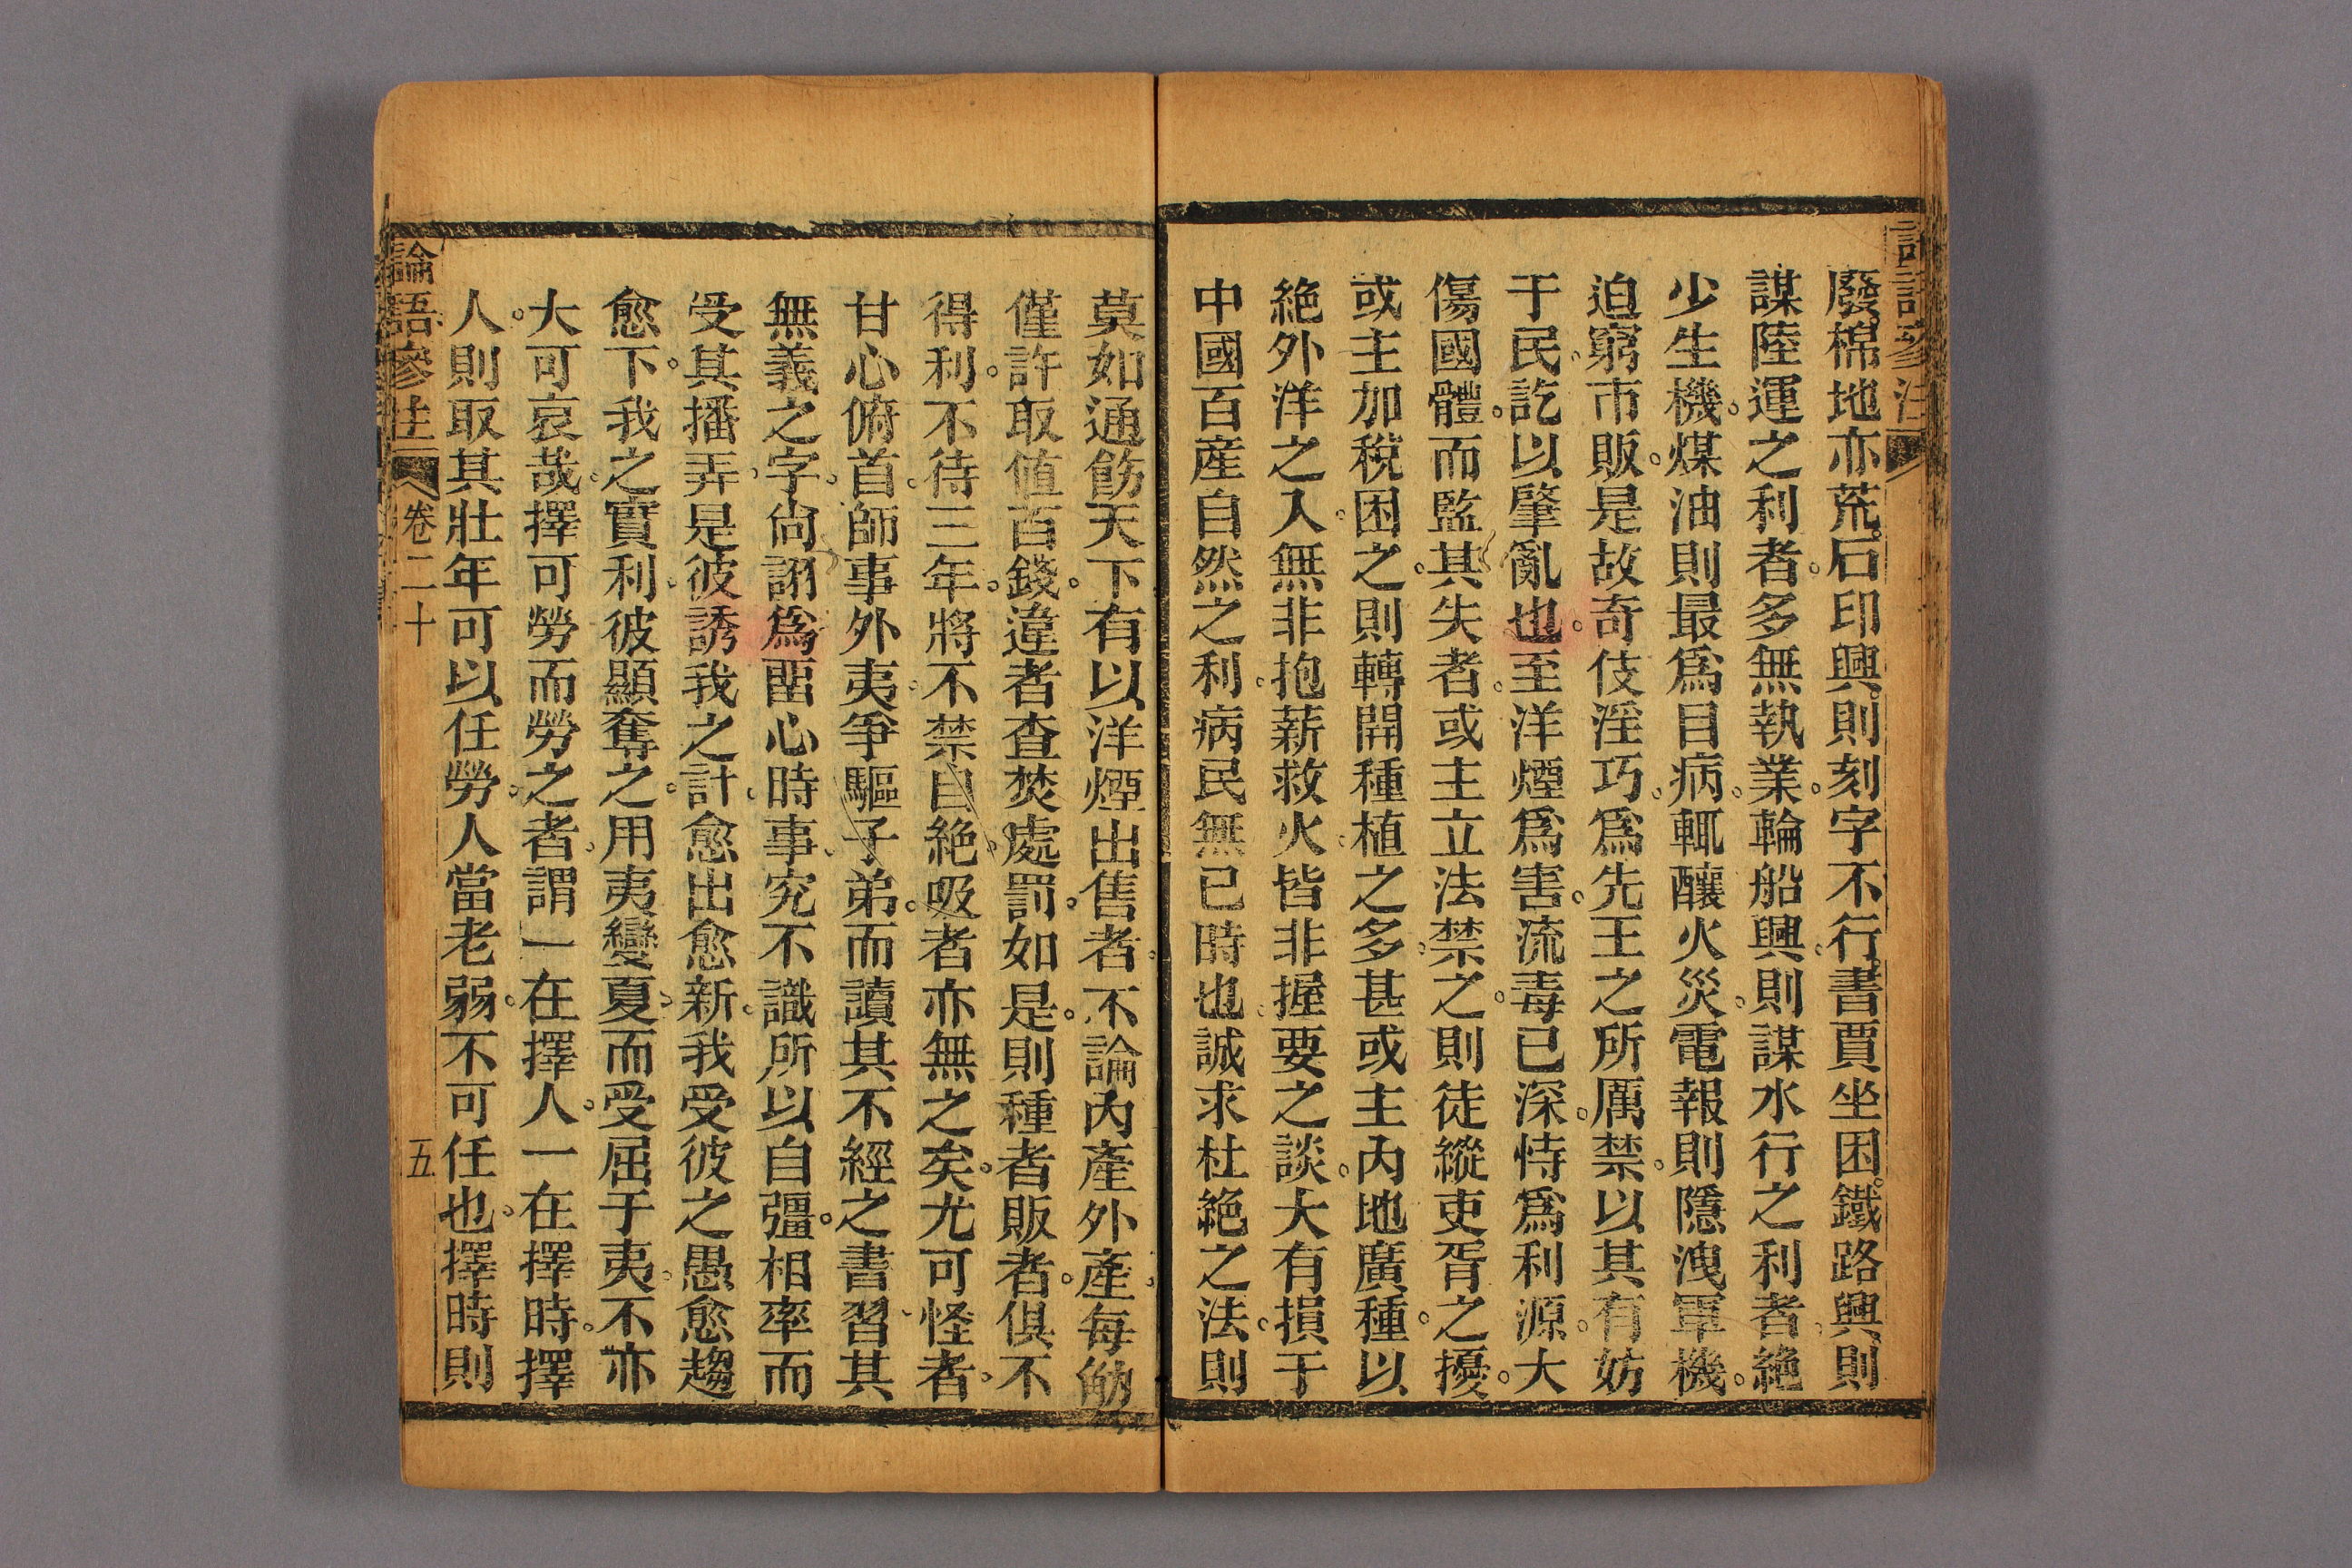 論語參注
廢棉地亦荒。石印興。則刻字不行。書賈坐困。鐵路興。則
謀陸運之利者。多無執業。輪船興。則謀水行之利者。絶
少生機。煤油則最爲目病。輒釀火災。電報則隱洩軍機。
迫窮市販。是故奇伎淫巧。爲先王之所厲禁。以其有妨
于民。訖以肇亂也。至洋煙爲害。流毒已深。恃爲利源。大
傷國體。而監其失者。或主立法禁之。則徒縱吏胥之擾。
或主加稅困之。則轉開種植之多。甚或主内地廣種。以
絶外洋之入。無非抱薪救火。皆非握要之談。大有損于
中國百産自然之利。病民無已時也。誠求杜絶之法。則
莫如通飭天下。有以洋煙出售者。不論内產外產。每觔
僅許取値百錢。違者查焚處罰。如是。則種者販者。俱不
得利。不待三年。將不禁自絶。吸者亦無之矣。尤可怪者。
甘心俯首。師事外夷。爭驅子弟。而讀其不經之書。習其
無義之字。尙詡爲畱心時事。究不識所以自彊。相率而
受其播弄。是彼誘我之計。愈出愈新。我受彼之愚愈趨
愈下。我之實利。彼顯奪之。用夷變夏。而受屈于夷。不亦
大可哀哉。擇可勞而勞之者。謂一在擇人。一在擇時。擇
人。則取其壯年可以任勞。人當老弱。不可任也。擇時則
論語參注 卷二十 五